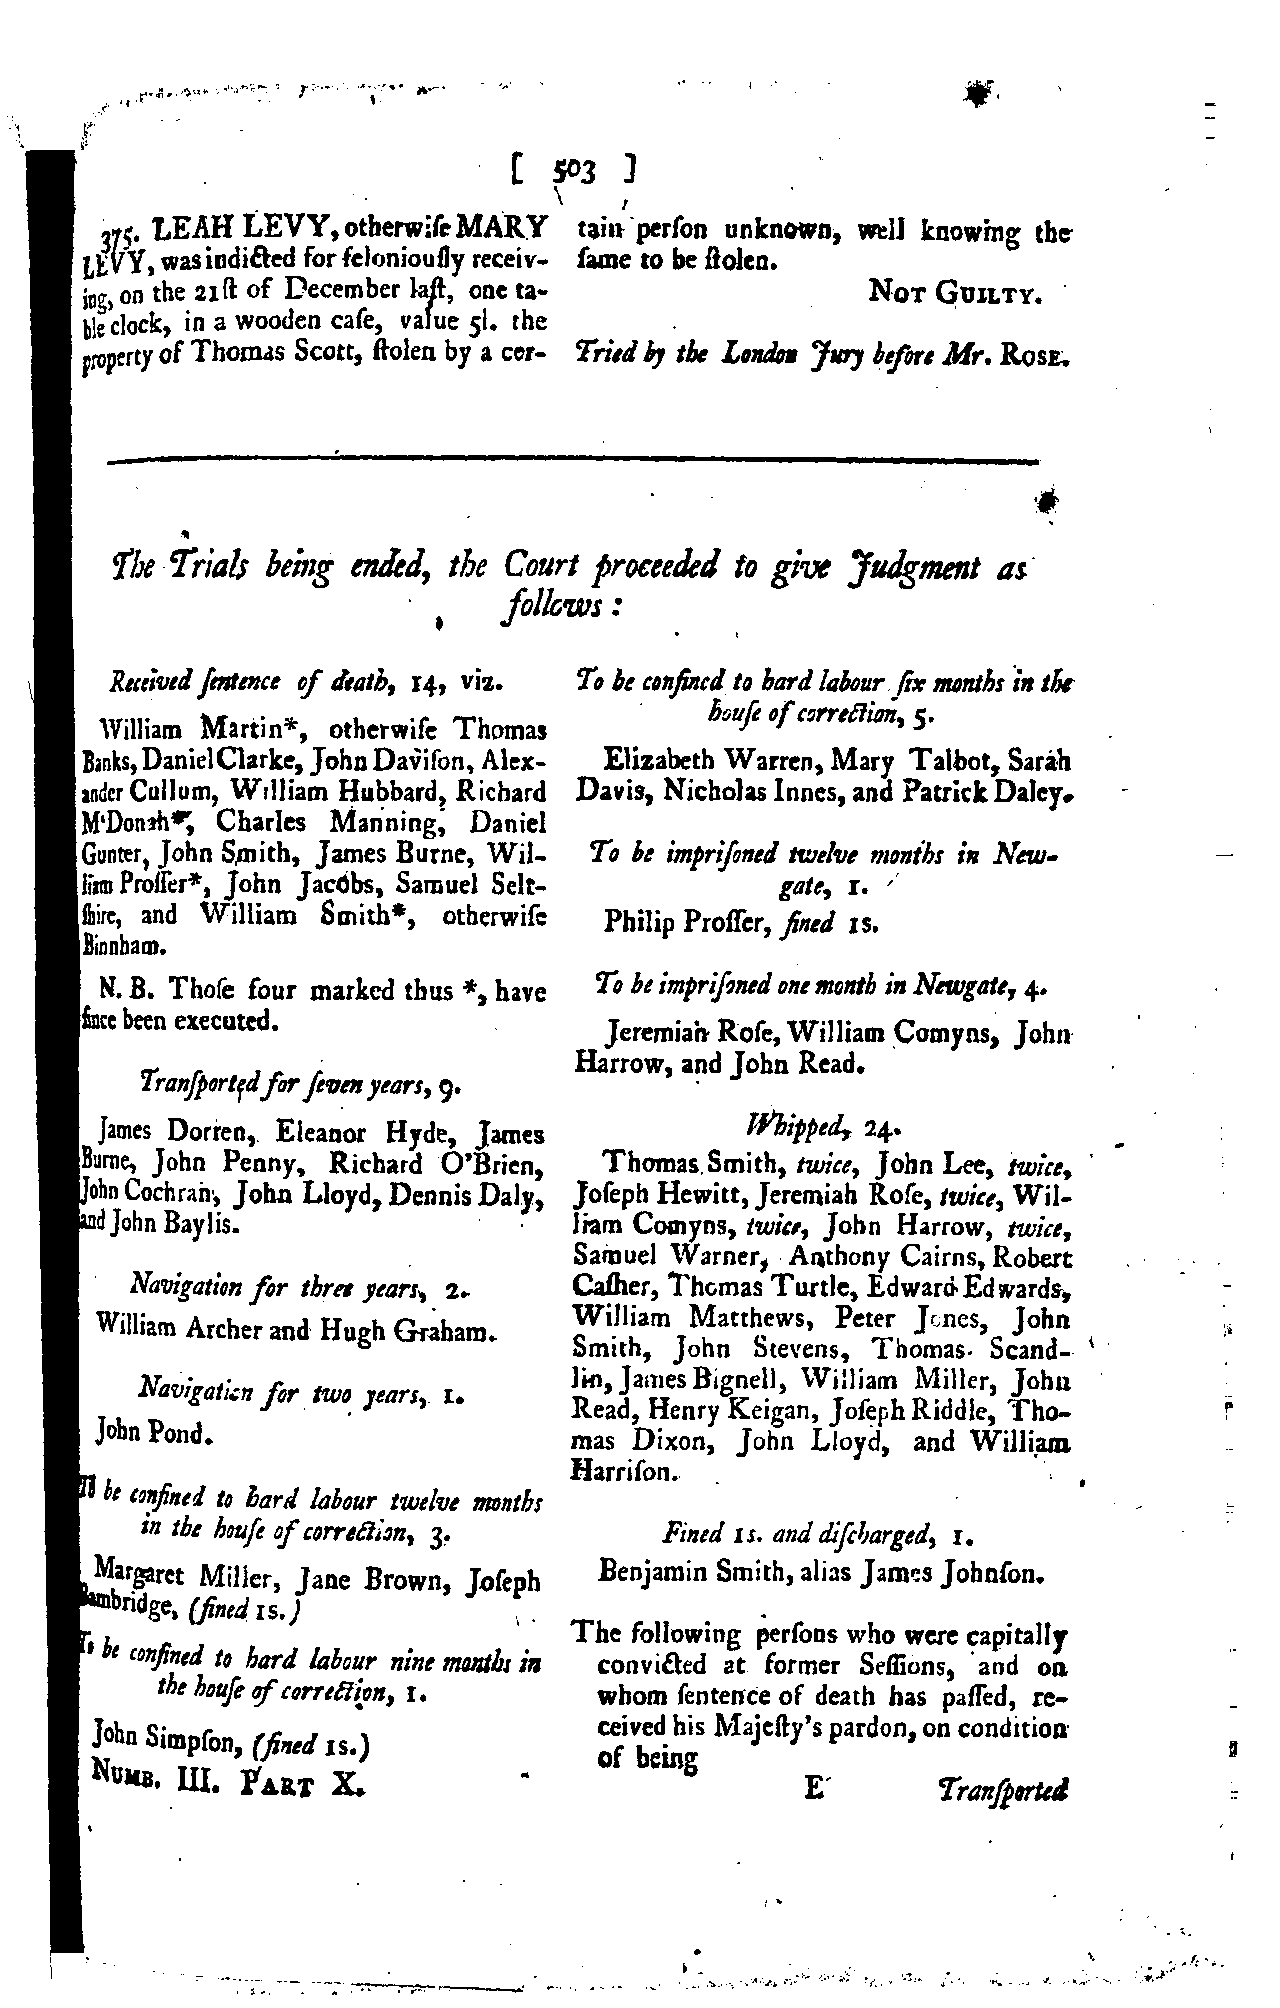 [ 503 ]
375. LEAH LEVY, otherwiſe MARY
LEVY, was indicted for feloniouſly receiv-
ing, on the 21ſt of December laſt, one ta-
ble clock, in a wooden caſe, value 5l. the
property of Thomas Scott, ſtolen by a cer-
tain perſon unknown, well knowing the
ſame to be ſtolen.
NOT GUILTY.
Tried by the London Jury before Mr. ROSE.
The Trials being ended, the Court proceeded to give Judgment as
follows:
Received ſentence of death, 14, viz.
William Martin*, otherwiſe Thomas
Banks, Daniel Clarke, John Daviſon, Alex-
ander Cullum, William Hubbard, Richard
M'Donah*, Charles Manning, Daniel
Gunter, John Smith, James Burne, Wil-
liam Proſſer*, John Jacobs, Samuel Selt-
ſhire, and William Smith*, otherwiſe
Binnham.
N. B. Thoſe four marked thus *, have
ſince been executed.
Tranſported for ſeven years, 9.
James Dorren, Eleanor Hyde, James
Burne, John Penny, Richard O'Brien,
John Cochran, John Lloyd, Dennis Daly,
and John Baylis.
Navigation for three years, 2.
William Archer and Hugh Graham.
Navigation for two years, 1.
John Pond.
To be confined to hard labour twelve months
in the houſe of correction, 3.
Margaret Miller, Jane Brown, Joſeph
Bambridge, (fined 1s.)
To be confined to hard labour nine months in
the houſe of correction, 1.
John Simpſon, (fined 1s.)
NUMB. III. PART X.
To be confined to hard labour ſix months in the
houſe of correction, 5.
Elizabeth Warren, Mary Talbot, Sarah
Davis, Nicholas Innes, and Patrick Daley.
To be impriſoned twelve months in New-
gate, 1.
Philip Proſſer, fined 1s.
To be impriſoned one month in Newgate, 4.
Jeremiah Roſe, William Comyns, John
Harrow, and John Read.
Whipped, 24.
Thomas Smith, twice, John Lee, twice,
Joſeph Hewitt, Jeremiah Roſe, twice, Wil-
liam Comyns, twice, John Harrow, twice,
Samuel Warner, Anthony Cairns, Robert
Caſher, Thomas Turtle, Edward Edwards,
William Matthews, Peter Jones, John
Smith, John Stevens, Thomas Scand-
lin, James Bignell, William Miller, John
Read, Henry Keigan, Joſeph Riddle, Tho-
mas Dixon, John Lloyd, and William
Harriſon.
Fined 1s. and diſcharged, 1.
Benjamin Smith, alias James Johnſon.
The following perſons who were capitally
convicted at former Seſſions, and on
whom ſentence of death has paſſed, re-
ceived his Majeſty's pardon, on condition
of being
E Tranſported